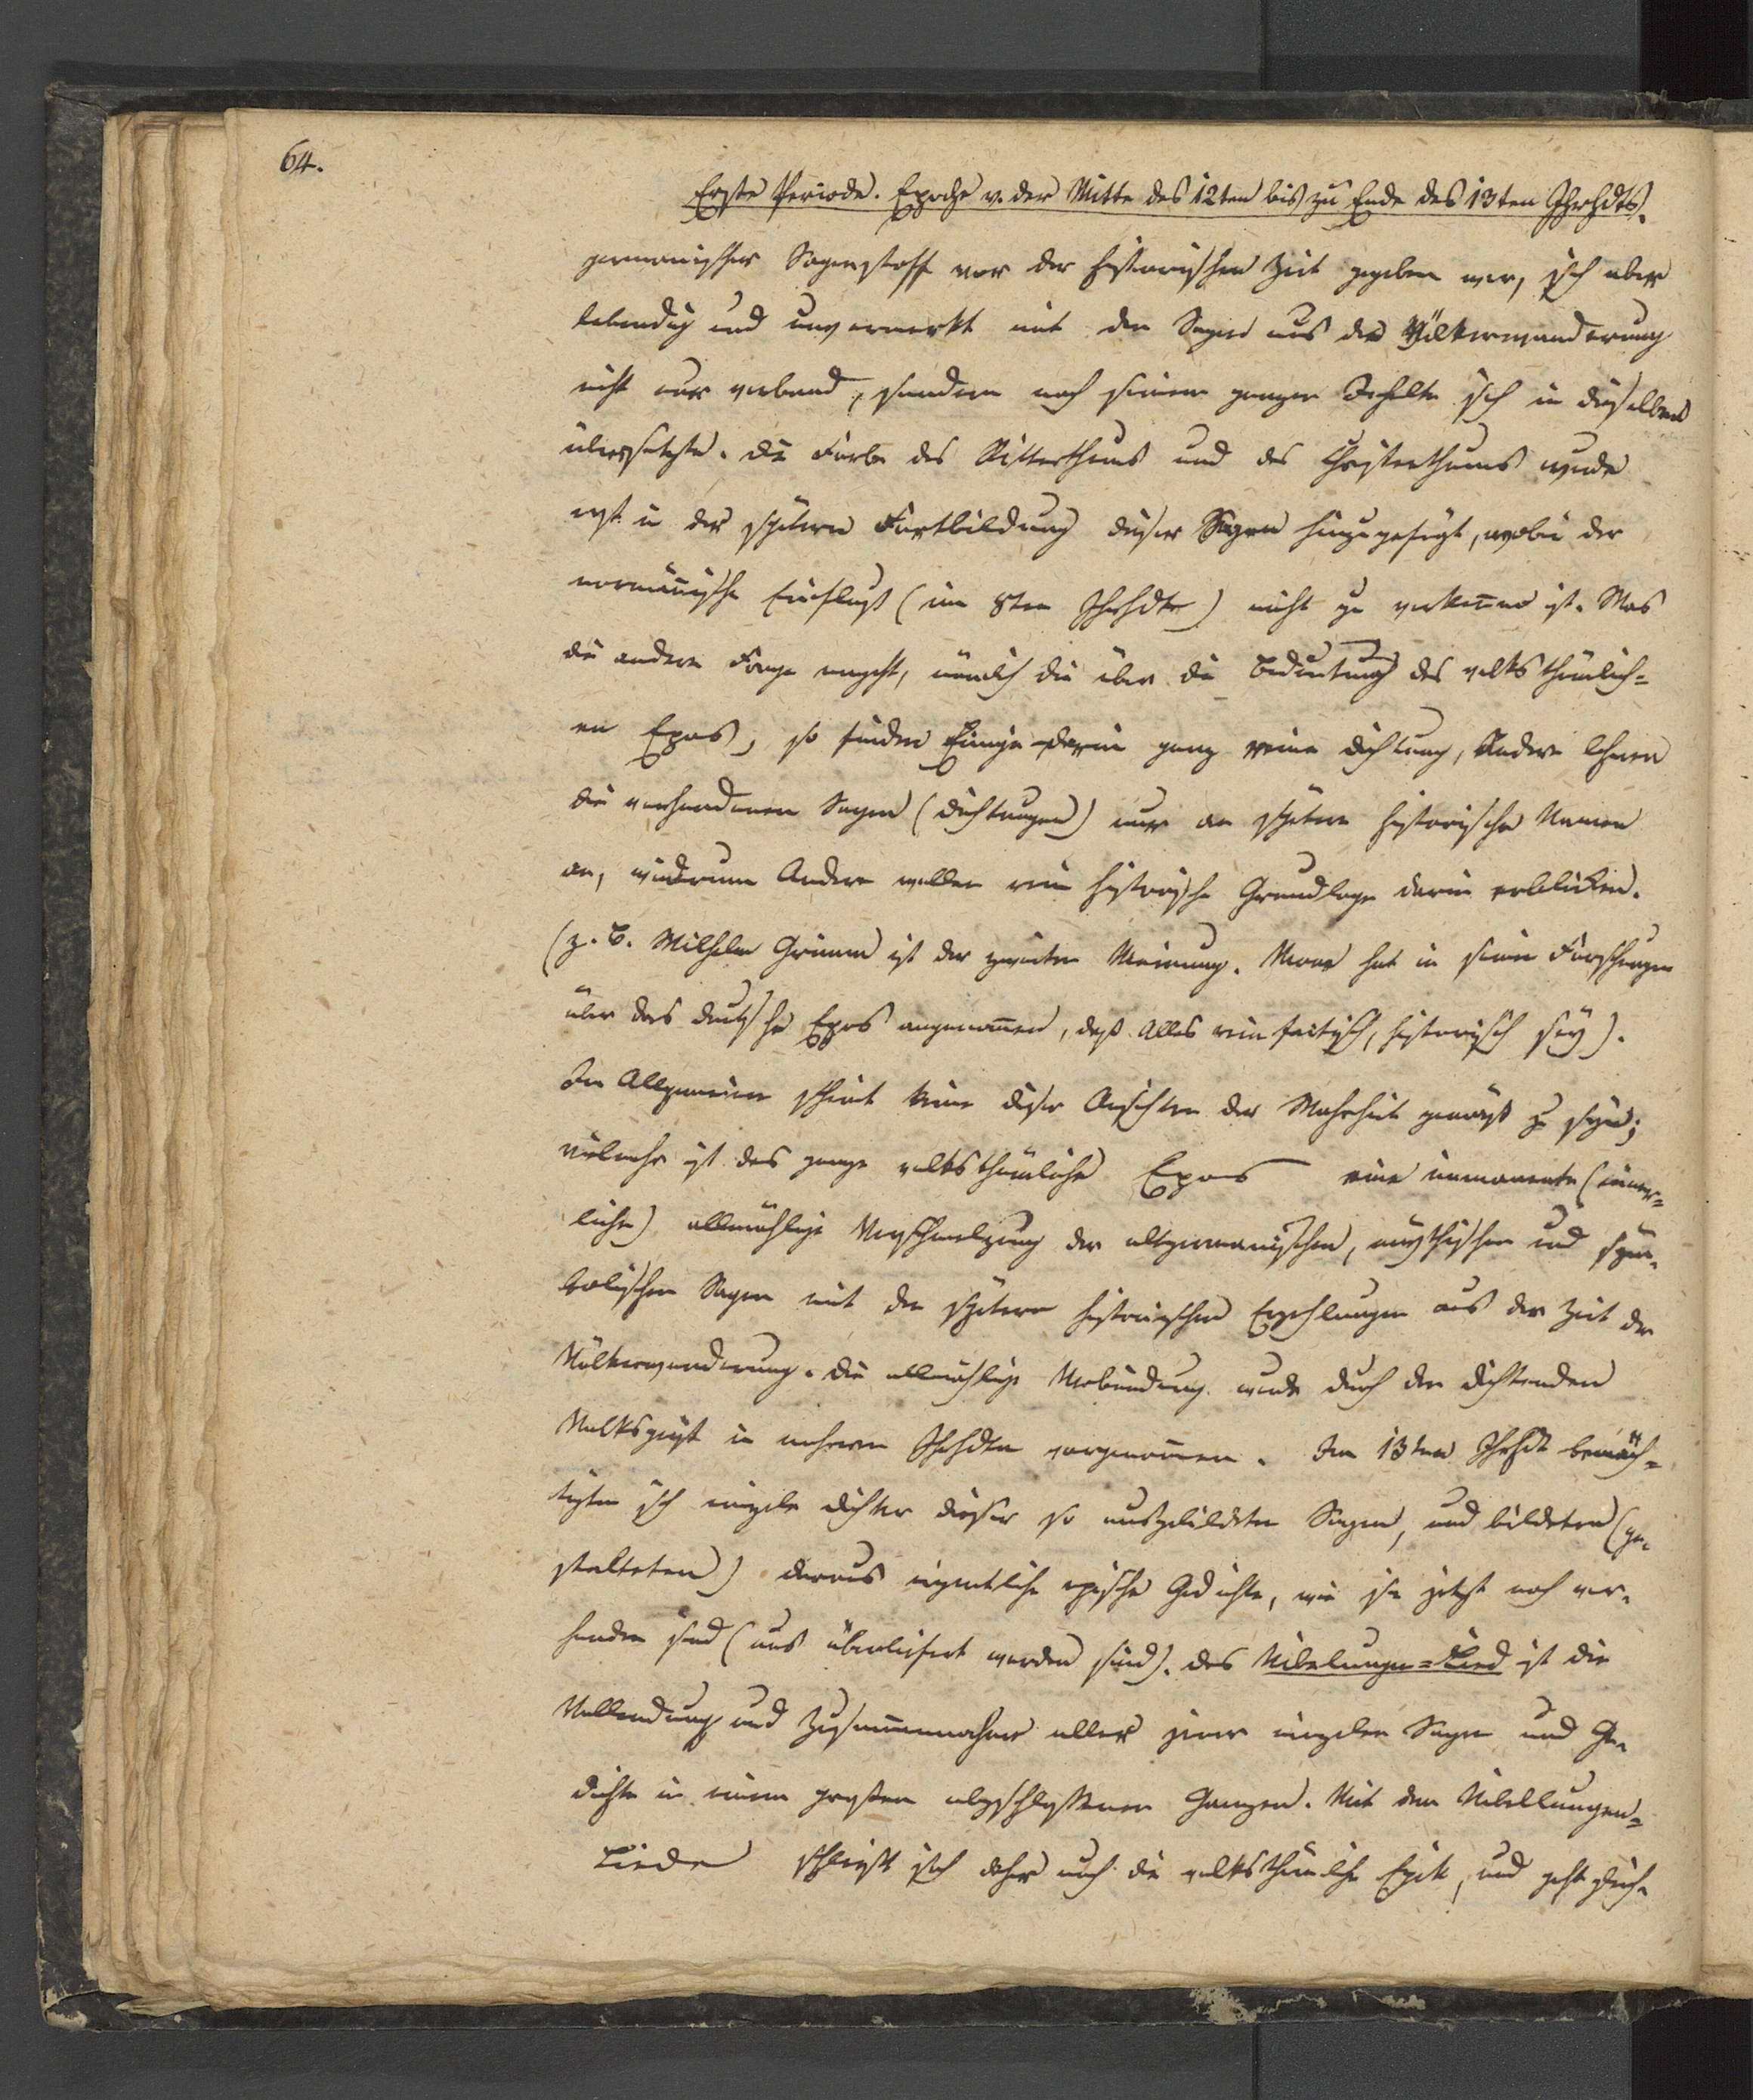 64.
Erste Periode. Epoche v. der Mitte des 12ten bis zu Ende des 13ten Jhrhdts.
germanischer Sagenstoff vor der historischen Zeit gegeben war, sich aber
lebendig und unvermerkt mit den Sagen aus der Völkerwanderung
nicht nur verband, sondern nach seinem ganzen Gehalte sich in dieselben
übersetzte. Die Farbe des Ritterthums und des Christenthums wurde
erst in der spätern Fortbildung dieser Sagen hinzugefügt, wobei der
normänische Einfluß (im 8ten Jhrhdte) nicht zu verkenen ist. Was
die andere Frage angeht, nämlich die über die Bedeutung des volksthümlich=
en Epos, so finden Einige darin ganz reine Dichtung, Andere lehnen
die vorhandenen Sagen (Dichtungen) nur an spätere historische Namen
an, wiederum Andere wollen rein historische Grundlage darin erblicken.
(z. B. Wilhelm Grimm ist der zweiten Meinung. Mone hat in seinen Forschungen
über das deutsche Epos angenomen, daß Alles rein factisch, historisch sey).
Im Allgemeinen scheint keine dieser Ansichten der Wahrheit gemäß zu seyn;
vielmehr ist das ganze volksthümliche Epos eine immanente (inner=
liche) allmählige Verschmelzung der altgermanischen, mythischen und sym-
bolischen Sagen mit den spätern historischen Erzehlungen aus der Zeit der
Völkerwanderung. Die allmählige Verbindung wurde durch den dichtenden
Volksgeist in mehreren Jhrhdten vorgenomen. Im 13ten Jhrhdt bemäch=
tigten sich einzelne Dichter dieser so ausgebildeten Sagen, und bildeten (ge-
stalteten) daraus eigentliche epische Gedichte, wie sie jetzt noch vor-
handen sind (uns überliefert worden sind). Das Nibelungen=Lied ist die
Vollendung und Zusammennahme aller jener einzelnen Sagen und Ge-
dichte in einem großen abgeschloßenen Ganzen. Mit dem Nibellungen=
Liede schließt sich daher auch die volksthümliche Epik, und geht gleich-